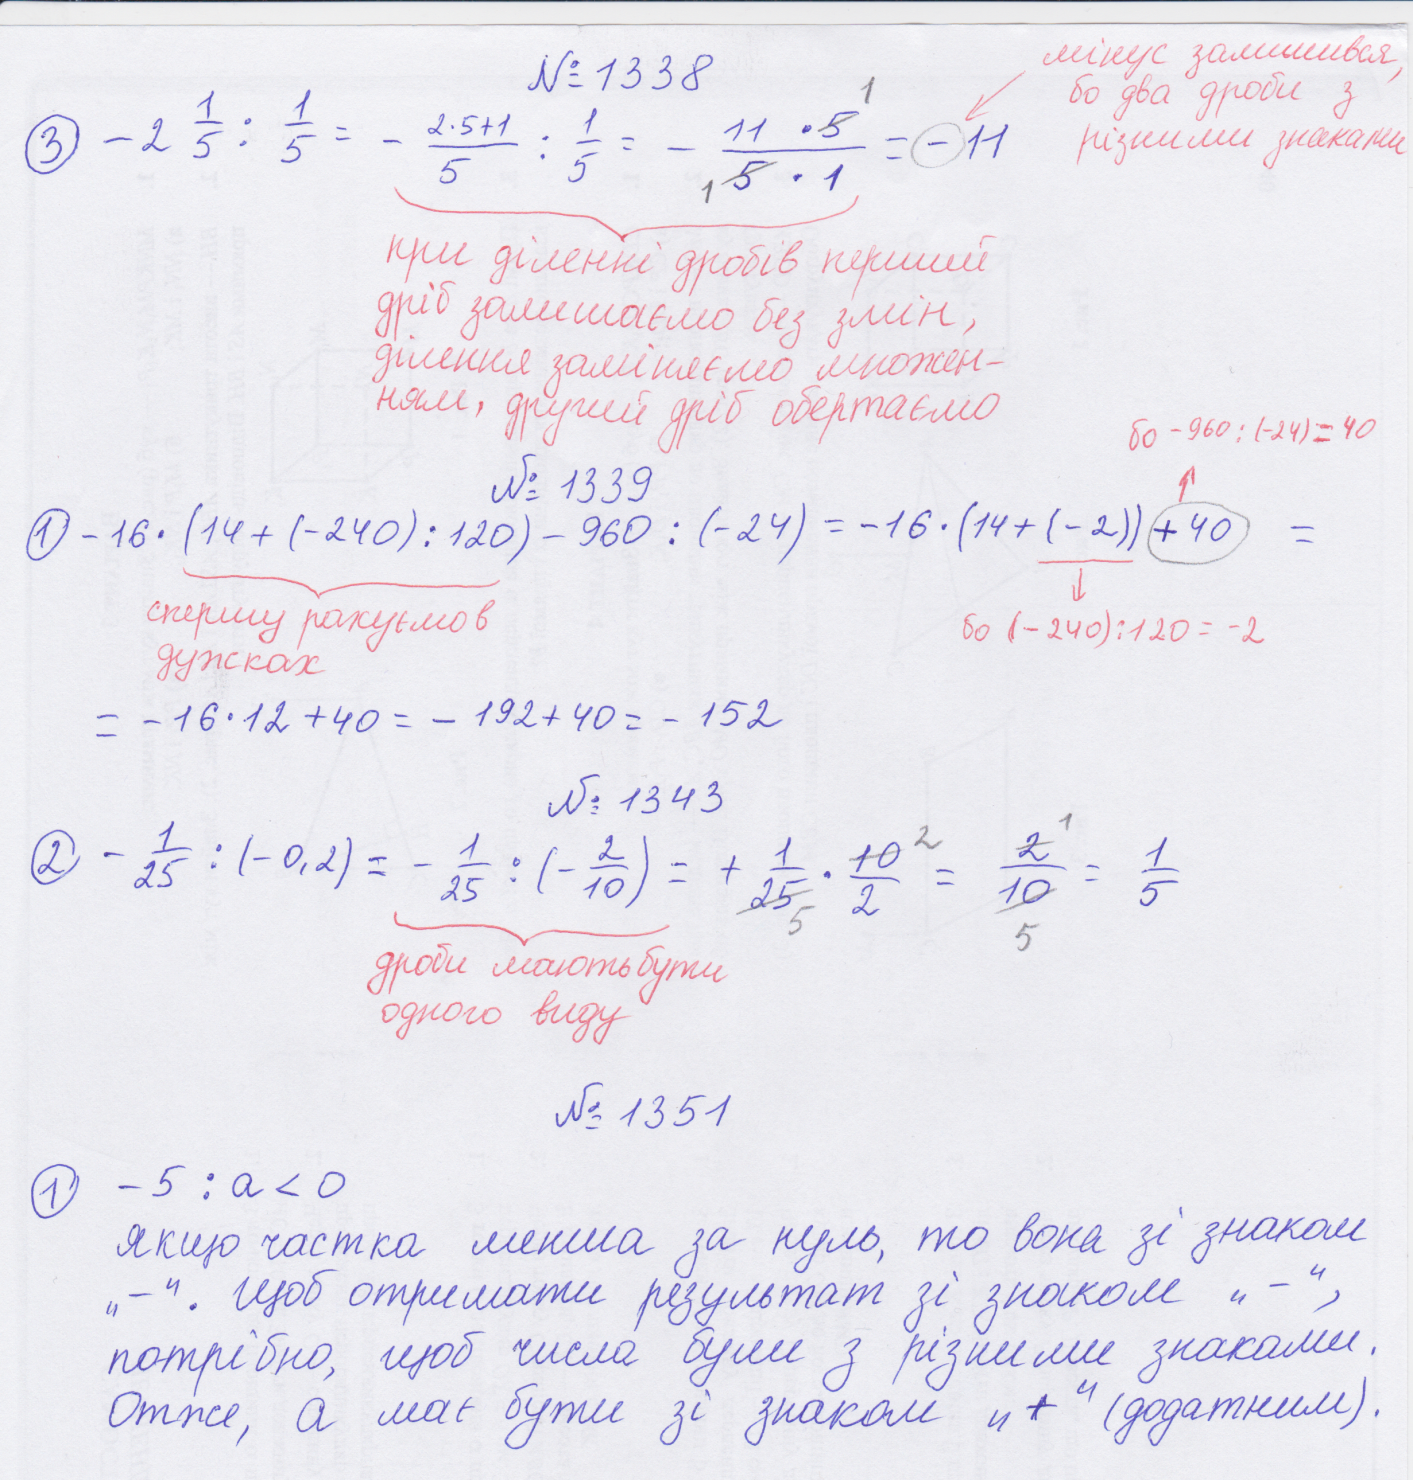 № 1338
мінус залишився,
бо два дроби з
різними знаками
③ - 2 1/5 : 1/5 = - (2·5+1)/5 : 1/5 = - (11 · 5 1)/(1 5 · 1) = - 11
при діленні дробів перший
дріб залишаємо без змін,
ділення заміняємо множен-
ням, другий дріб обертаємо
бо -960 : (-24) = 40
№ 1339
① - 16 · (14 + (-240) : 120) - 960 : (-24) = -16 · (14 + (-2)) + 40 =
спершу рахуємо в
дужках
бо (-240) : 120 = -2
= - 16 · 12 + 40 = - 192 + 40 = - 152
№ 1343
② - 1/25 : (-0,2) = - 1/25 : (- 2/10) = + 1/25 5 · 10 2/2 = 2 1/10 5 = 1/5
дроби мають бути
одного виду
№ 1351
① - 5 : a < 0
Якщо частка менша за нуль, то вона зі знаком
„-“. Щоб отримати результат зі знаком „-“,
потрібно, щоб числа були з різними знаками.
Отже, a має бути зі знаком „+“ (додатним).